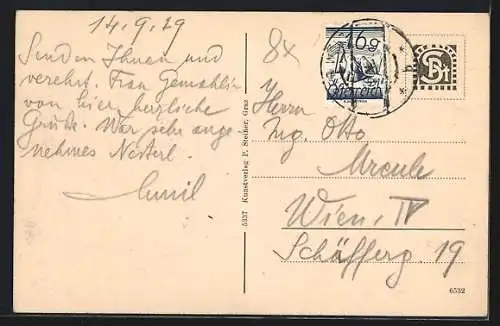 14.9.29
Senden Ihnen und
verehrt. Frau Gemahlin
von hier herzliche
Grüße. War sehr ange-
nehmes Nesterl.
Emil
8x
16g
Österreich
Herrn
Ing. Otto
Wien, IV
Schäfferg. 19
5937 Kunstverlag P. Stedler, Graz
6532